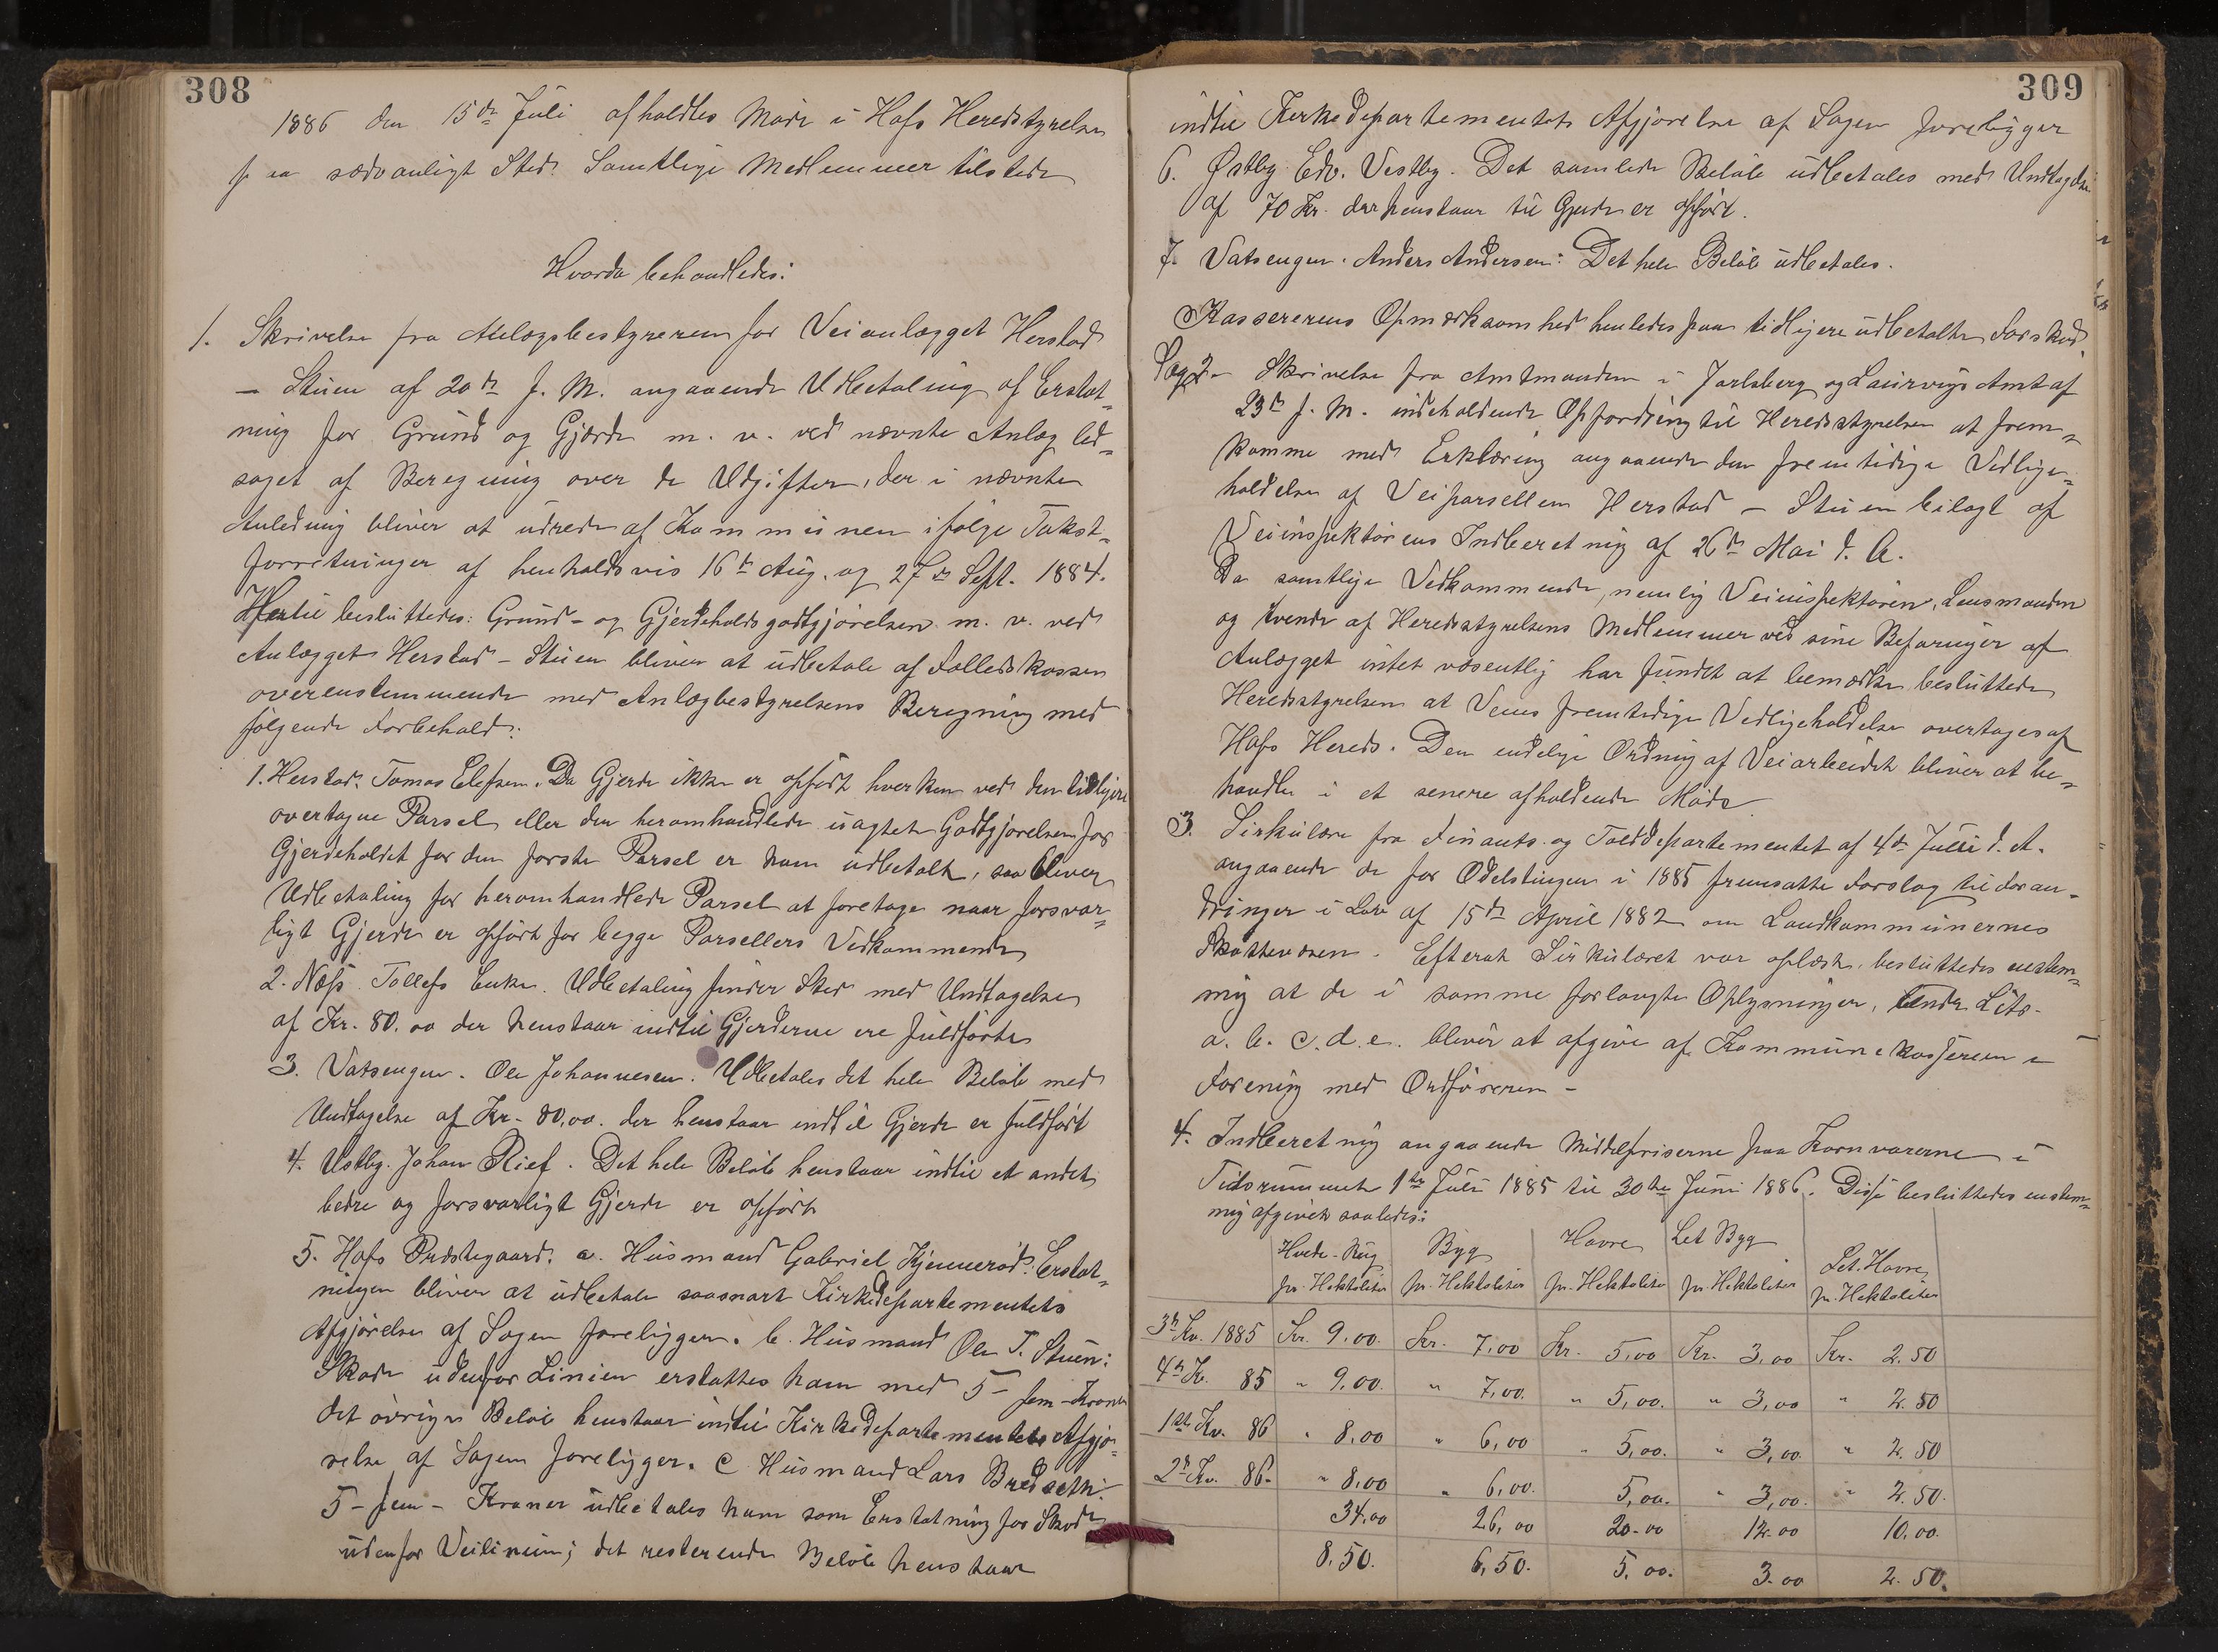 308
1886 den 15de Juli afholdtes Møde i Hofs Heredstyrelse
paa sædvanligt Sted. Samtlige Medlemmer tilstede
Hvorda behandledes:
1. Skrivelse fra Anlægsbestyreren for Veianlægget Herstad
– Stuen af 20de f. M. angaaende Udbetaling af Erstat=
ning for Grund og Gjærde m. v. ved nævnte Anlæg led=
saget af Beregning over de Udgifter, der i nævnte
Anledning bliver at udrede af Kommunen ifølge Takst=
forretninger af henholdsvis 16de Aug. og 27de Sept. 1884.
Hertil besluttedes: Grund- og Gjerdeholdsgodtgjørelsen m. v. ved
Anlægget Herstad – Stuen bliver at udbetale af Fælledskassen
overenstemmende med Anlægbestyrelsens Beregning med
følgende Forbehold:
1. Herstad. Tomas Elefsen. Da Gjerde ikke er opført hverken ved den tidligere
overtagne Parsel eller den heromhandlede uagtet Godtgjørelsen for
Gjerdeholdet for den første Parsel er ham udbetalt, saa bliver
Udbetaling for heromhandlede Parsel at foretage naar forsvar=
ligt Gjerde er opført for begge Parsellers Vedkommende
2. Næss. Tollefs Enke. Udbetaling finder Sted med Undtagelse
af Kr. 80.00 der henstaar indtil Gjerderne ere fuldførte
3. Vatsengen. Ole Johannesen. Udbetales det hele Beløb med
Undtagelse af Kr. 80,00. der henstaar indtil Gjerde er fuldført
4. Østby. Johan Rief. Det hele Beløb henstaar indtil et andet
bedre og forsvarligt Gjerde er opført
5. Hofs Præstegaard. a. Husmand Gabriel Kjennerød. Erstat=
ningen bliver at udbetale saasnart Kirkedepartementets
Afgjørelse af Sagen foreligger. b. Husmand Ole T. Stuen:
Skade udenfor Linien erstattes ham med 5 – fem – Kroner
det øvrige Beløb henstaar indtil Kirkedepartementets Afgjø=
relse af Sagen foreligger. c Husmand Lars Bredseth:
5 – fem – Kroner udbetales ham som Erstatning for Skade
udenfor Veilinien; det resterende Beløb henstaar
309
indtil Kirkedepartementets Afgjørelse af Sagen foreligger
6. Østby Edv. Vestby. Det samlede Beløb udbetales med Undtagelse
af 70 Kr. der henstaar til Gjerde er opført.
7. Vatsengen. Anders Andersen: Det hele Beløb udbetales.
Kassererens Opmærksomhed henledes paa tidligere udbetalte Forskud.
Sag 2. Skrivelse fra Amtmanden i Jarlsberg og Laurvigs Amt af
23de f. M. indeholdende Opfordring til Heredsstyrelsen at frem=
komme med Erklæring angaaende den fremtidige Vedlige=
holdelse af Veiparsellen Herstad – Stuen bilagt af
Veiinspektørens Indberetning af 26de Mai d. A.
Da samtlige Vedkommende, nemlig Veiinspektøren, Lensmanden
og tvende af Heredsstyrelsens Medlemmer ved sine Befaringer af
Anlægget intet væsentlig har fundet at bemærke besluttede
Heredsstyrelsen at Veiens fremtidige Vedligeholdelse overtages af
Hofs Hered. Den endelige Ordning af Veiarbeidet bliver at be=
handle i et senere afholdende Møde
3. Sirkulære fra Finants- og Tolddepartementet af 4de Juli d. A.
angaaende de for Odelstinget i 1885 fremsatte Forslag til Foran=
dringer i Lov af 15de April 1882 om Landkommunernes
Skattevæsen. Efterat Sirkulæret var oplæst, besluttedes enstem=
mig at de i samme forlangte Oplysninger, under Litr.
a. b. c. d. e. bliver at afgive af Kommunekassereren i
Forening med Ordføreren –
4. Indberetning angaaende Middelpriserne paa Kornvarerne i
Tidsrummet 1ste Juli 1885 til 30te Juni 1886. Disse besluttedes enstem=
mig afgivet saaledes:
Hvede-Rug Byg Havre Let Byg Let. Havre
pr. Hektoliter pr. Hektoliter pr. Hektoliter pr. Hektoliter pr. Hektoliter
3de Kv. 1885 Kr. 9.00. Kr. 7,00 Kr. 5,00 Kr. 3,00 Kr. 2.50
4de Kv. 85 " 9.00. " 7,00. " 5,00. " 3,00 " 2.50
1ste Kv. 86 " 8,00 " 6,00 " 5,00. " 3,00. " 2.50
2de Kv. 86. " 8,00 " 6,00. 5,00. " 3,00. " 2.50.
34,00 26,00 20-00 12-00 10.00.
8,50. 6,50. 5,00. 3-00 2.50.